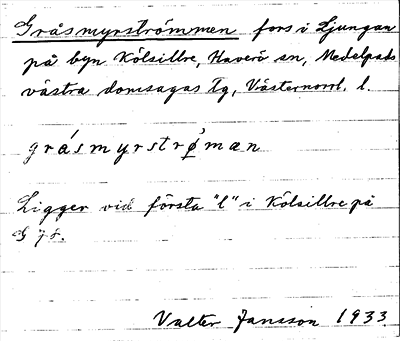 Gråsmyrströmmen fors i Ljungan
på byn Kölsillre, Haverö sn, Medelpads
västra domsagas tg, Västernorrl. l.
gråsmyrstrø̀man
Ligger vid första "l" i Kölsillre på
G 78.
Valter Jansson 1933